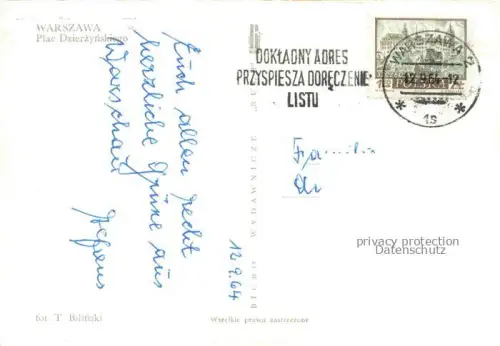 WARSZAWA
Plac Dzierżyńskiego
Euch allen recht
herzliche Grüße aus
Warschau
12.9.64
fot T. Biliński
Wszelkie prawa zastrzeżone
DOKŁADNY ADRES
PRZYSPIESZA DORĘCZENIE
LISTU
WARSZAWA 2
12.9.64-12
19
POLSKA
Familie
privacy protection
Datenschutz